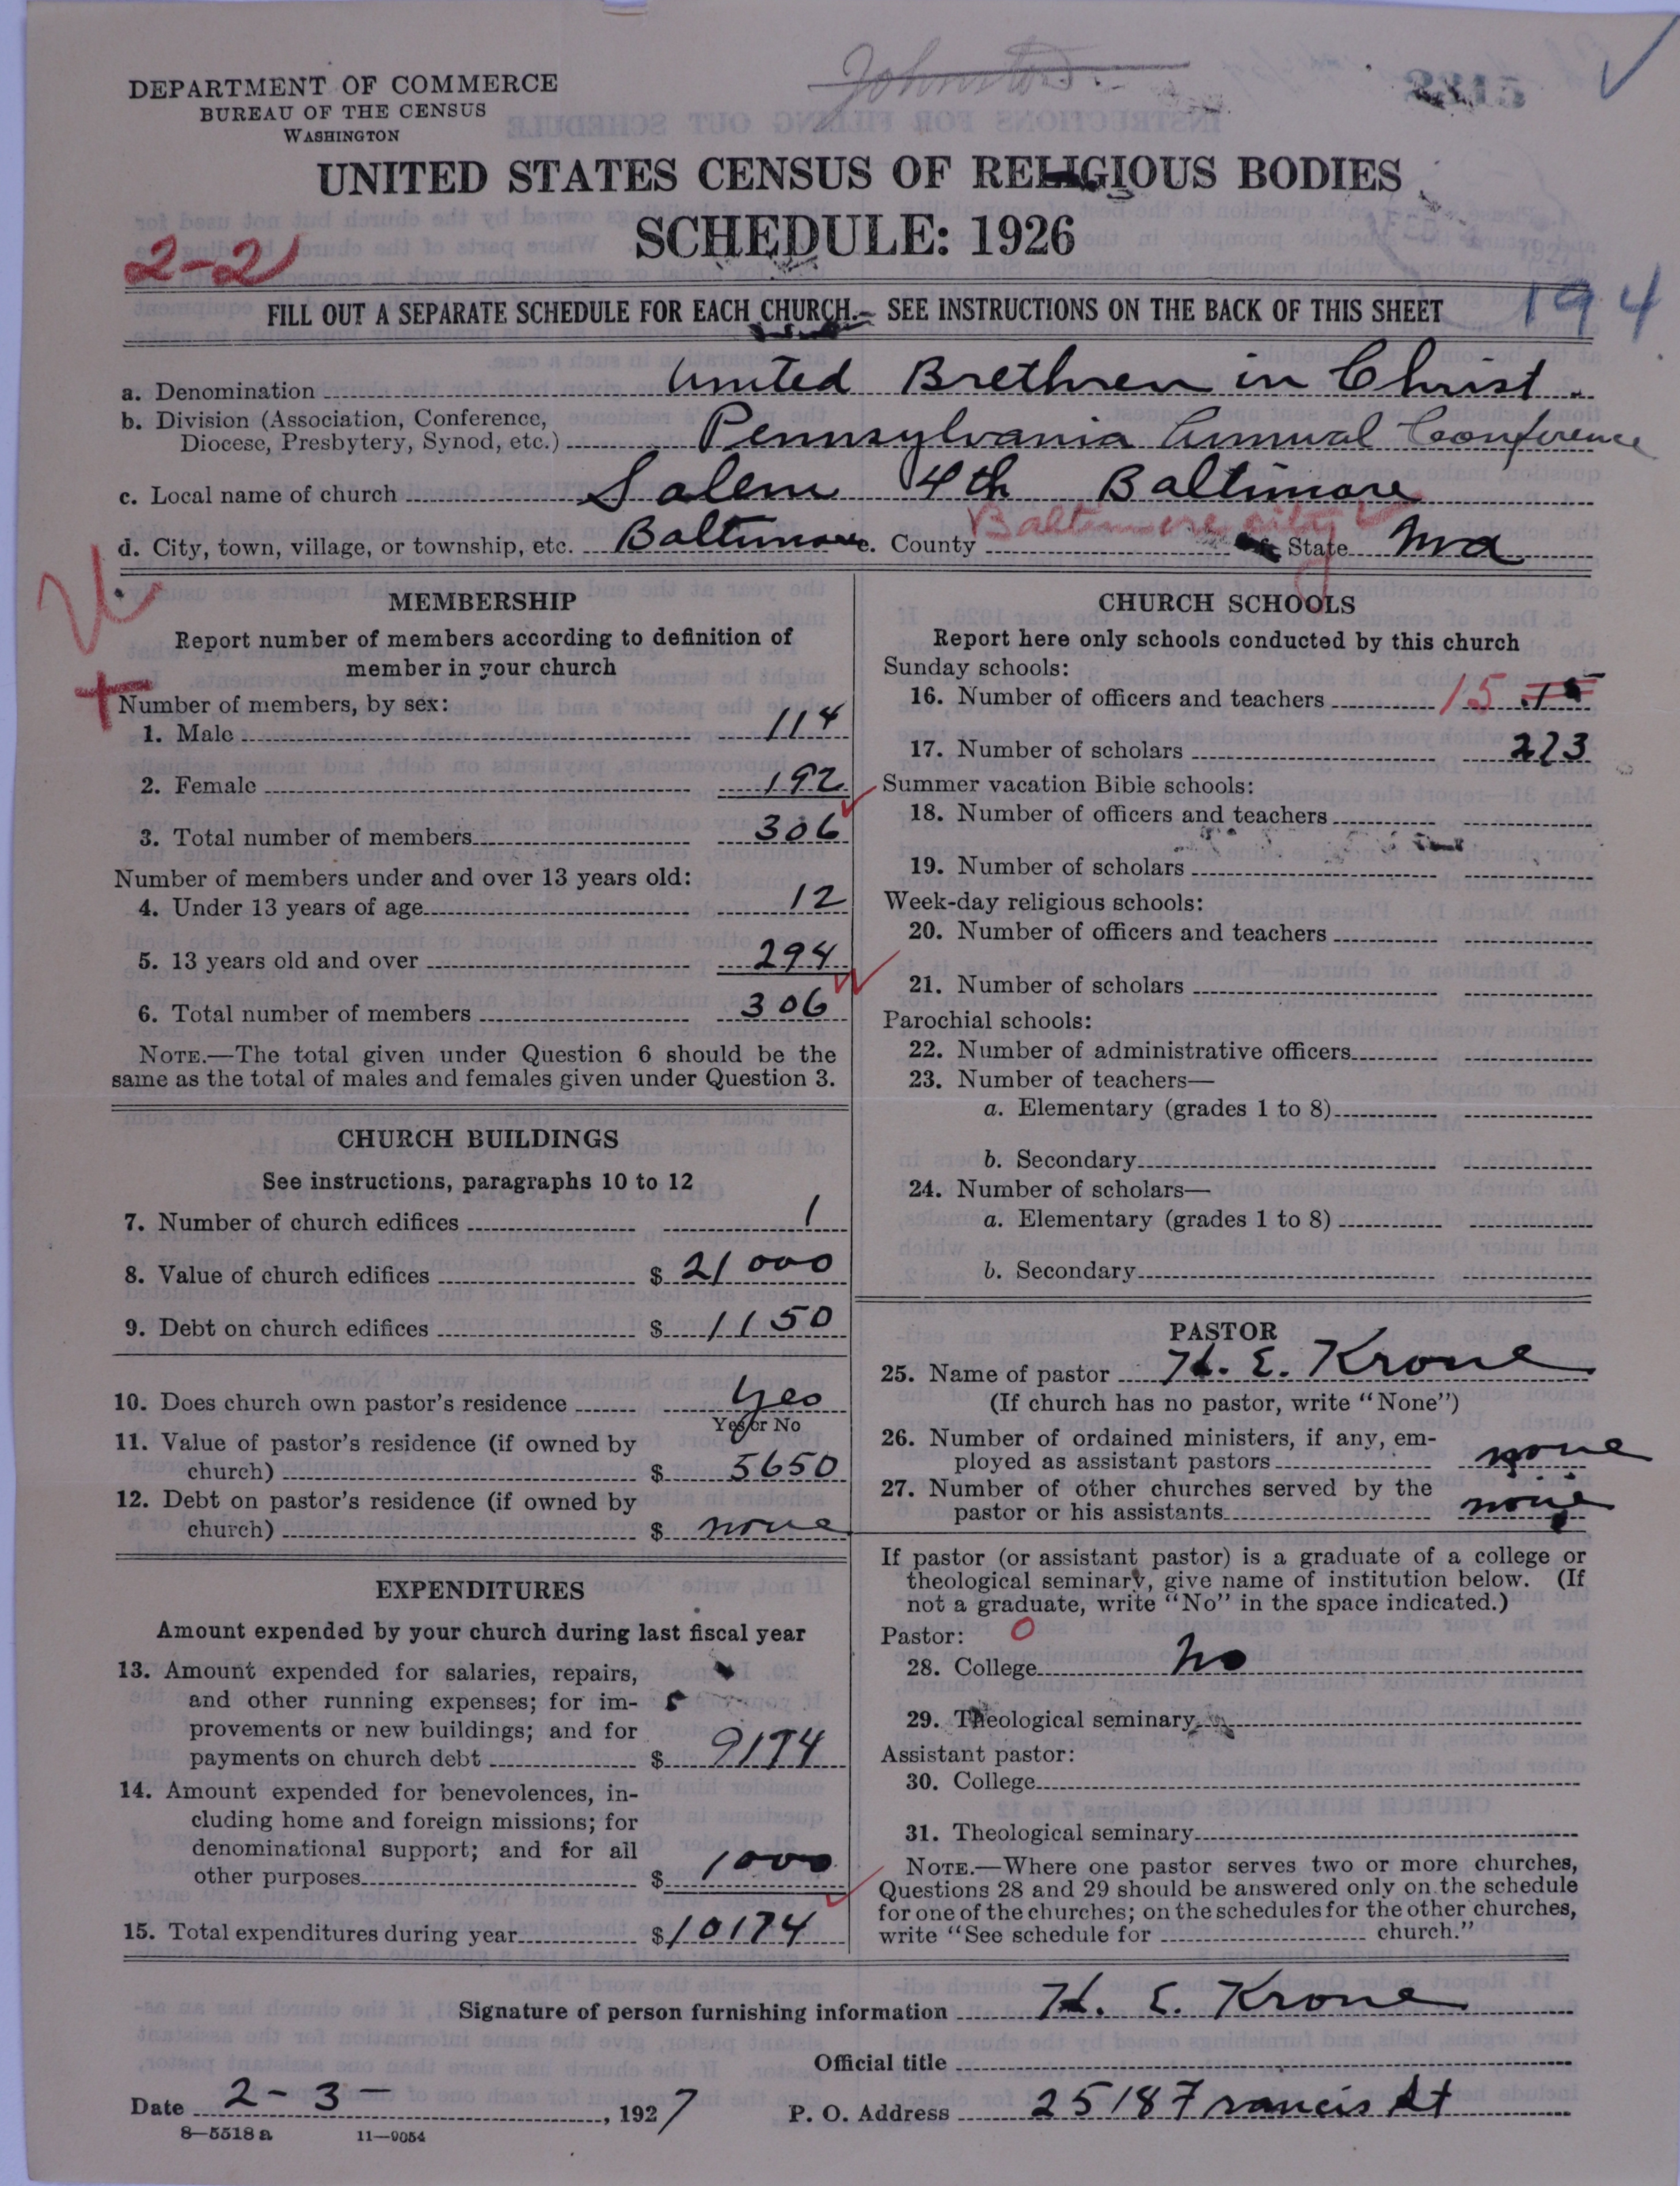 Johnston.
DEPARTMENT OF COMMERCE
BUREAU OF THE CENSUS
WASHINGTON
UNITED STATES CENSUS OF RELIGIOUS BODIES
SCHEDULE: 1926
2-2
194
FILL OUT A SEPARATE SCHEDULE FOR EACH CHURCH.— SEE INSTRUCTIONS ON THE BACK OF THIS SHEET
a. Denomination United Brethren in Christ.
b. Division (Association, Conference,
Diocese, Presbytery, Synod, etc.) Pennsylvania Annual Conference
c. Local name of church Salem 4th Baltimore
d. City, town, village, or township, etc. Baltimore e. County Baltimore city f. State Md
MEMBERSHIP
Report number of members according to definition of
member in your church
Number of members, by sex:
1. Male 114
2. Female 192
3. Total number of members 306
Number of members under and over 13 years old:
4. Under 13 years of age 12
5. 13 years old and over 294
6. Total number of members 306
NOTE.—The total given under Question 6 should be the
same as the total of males and females given under Question 3.
CHURCH BUILDINGS
See instructions, paragraphs 10 to 12
7. Number of church edifices 1
8. Value of church edifices $ 21000
9. Debt on church edifices $ 1150
10. Does church own pastor's residence Yes
Yes or No
11. Value of pastor's residence (if owned by
church) $ 5650
12. Debt on pastor's residence (if owned by
church) $ none
EXPENDITURES
Amount expended by your church during last fiscal year
13. Amount expended for salaries, repairs,
and other running expenses; for im-
provements or new buildings; and for
payments on church debt $ 9174
14. Amount expended for benevolences, in-
cluding home and foreign missions; for
denominational support; and for all
other purposes $ 1000
15. Total expenditures during year $ 10174
CHURCH SCHOOLS
Report here only schools conducted by this church
Sunday schools:
16. Number of officers and teachers 15 15
17. Number of scholars 223
Summer vacation Bible schools:
18. Number of officers and teachers
19. Number of scholars
Week-day religious schools:
20. Number of officers and teachers
21. Number of scholars
Parochial schools:
22. Number of administrative officers
23. Number of teachers—
a. Elementary (grades 1 to 8)
b. Secondary
24. Number of scholars—
a. Elementary (grades 1 to 8)
b. Secondary
PASTOR
25. Name of pastor H. E. Krone
(If church has no pastor, write "None")
26. Number of ordained ministers, if any, em-
ployed as assistant pastors none
27. Number of other churches served by the
pastor or his assistants none
If pastor (or assistant pastor) is a graduate of a college or
theological seminary, give name of institution below. (If
not a graduate, write "No" in the space indicated.)
Pastor: 0
28. College No
29. Theological seminary
Assistant pastor:
30. College
31. Theological seminary
NOTE.—Where one pastor serves two or more churches,
Questions 28 and 29 should be answered only on the schedule
for one of the churches; on the schedules for the other churches,
write "See schedule for church."
Signature of person furnishing information H. E. Krone
Official title
Date 2-3-, 1927 P. O. Address 2518 Francis St
8—5518 a 11—9054